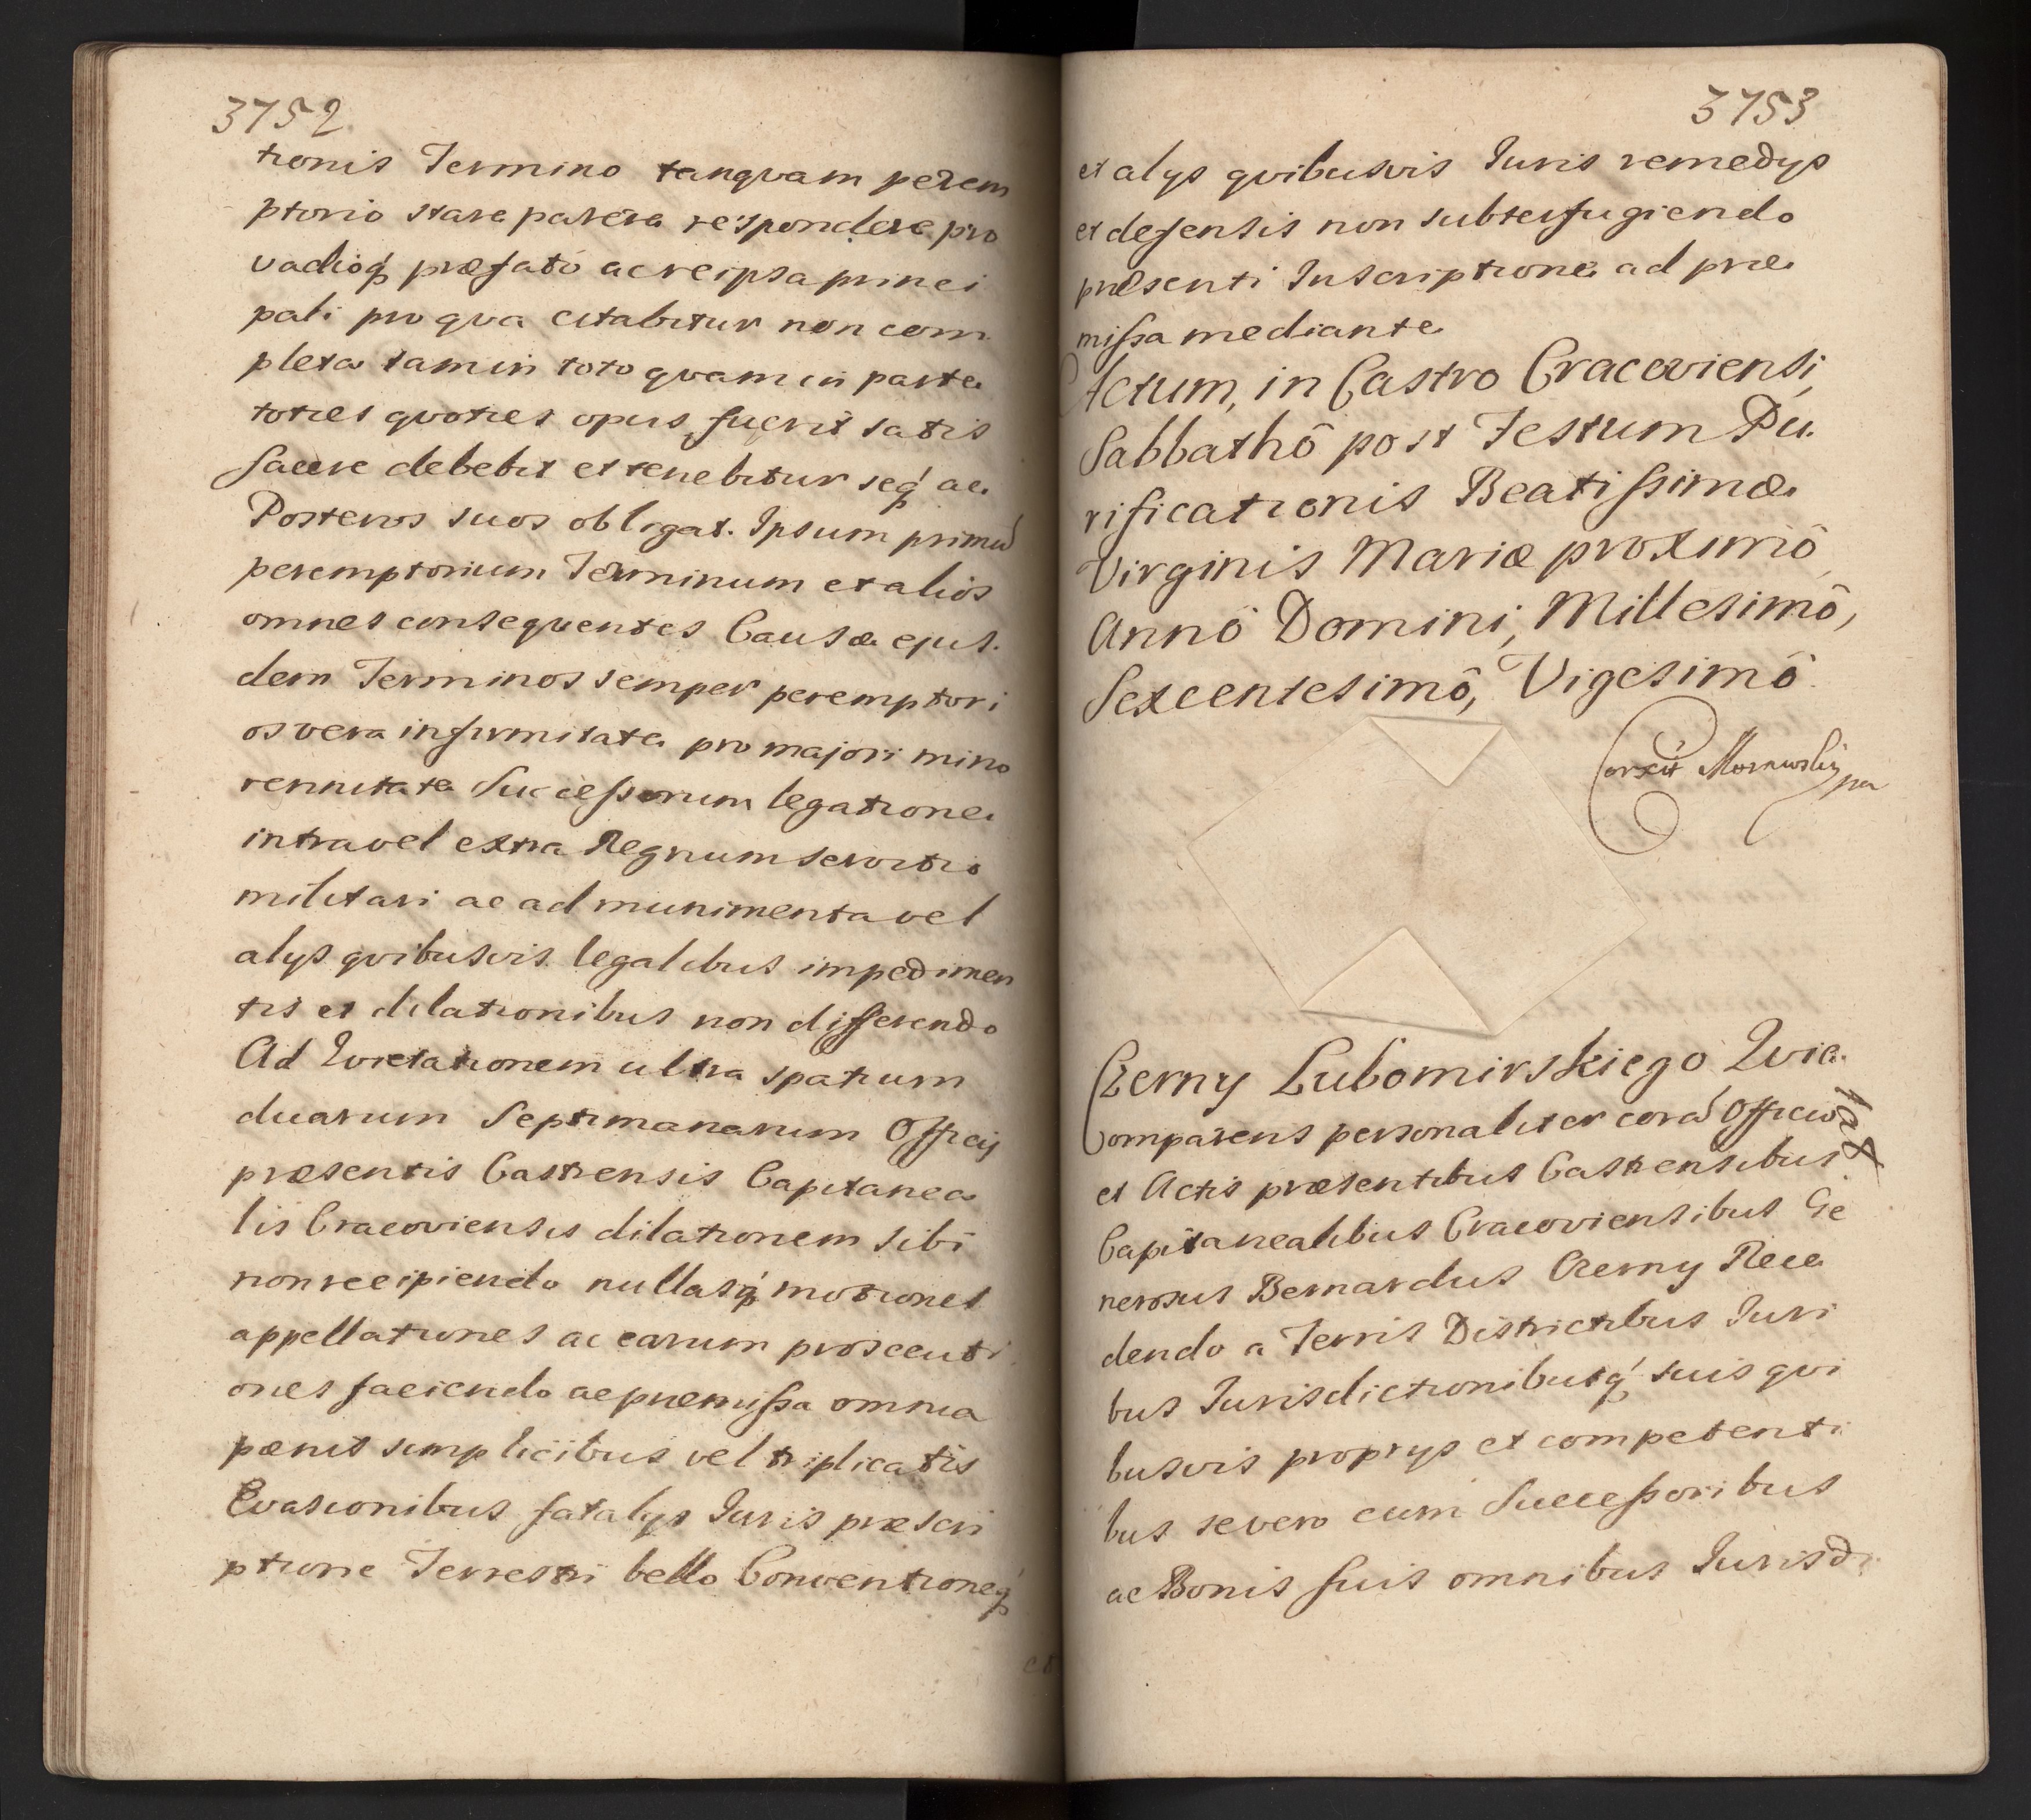 3752
tionis Termino tanqvam perem
ptorio stare parere respondere pro
vadioq́ præfatô ac reipsa princi
pali pro qva citabitur non com
pleta tam in toto qvam in parte
toties qvoties opus fuerit satis
facere debebit et tenebitur seq́ ac
Posteros suos obligat. Ipsum primũ
peremptorium Terminum et alios
omnes conseqventes Causæ ejus.
dem Terminos semper peremptori
os vera infirmitate pro majori mino
rennitate Successorum legatione
intra vel extra Regnum servitio
militari ac ad munimenta vel
alys qvibusvis legalibus impedimen
tis et dilationibus non differendo
Ad Lucrationem ultra spatium
duarum Septimanarum Officij
præsentis Castrensis Capitanea
lis Cracoviensis dilationem sibi
non recipiendo nullasq́ motiones
appellationes ac earum prosecuti
ones faciendo ac præmissa omnia
pænis simplicibus vel triplicatis
Evasionibus fatalys Juris præscri
ptione Terrestri bello Conventioneq́
et
3753
et alys qvibusvis Juris remedys
et defensis non subterfugiendo
præsenti Inscriptione ad præ
missa mediante
Actum, in Castro Cracoviensi,
Sabbathô post Festum Pu.
rificationis Beatissimæ
Virginis Mariæ proximô,
Annô Domini, Millesimô,
Sexcentesimô, Vigesimô
Corexit
Czerny Lubomirskiego Qvie
tat
Comparens personaliter corã Officio
et Actis præsentibus Castrensibus
Capitanealibus Cracoviensibus Ge
nerosus Bernardus Czerny Rece
dendo a Terris Districtibus Juri
bus Jurisdictionibusq́ suis qvi
busvis proprys et competenti
bus se vero cum Successoribus
ac Bonis suis omnibus Jurisdi